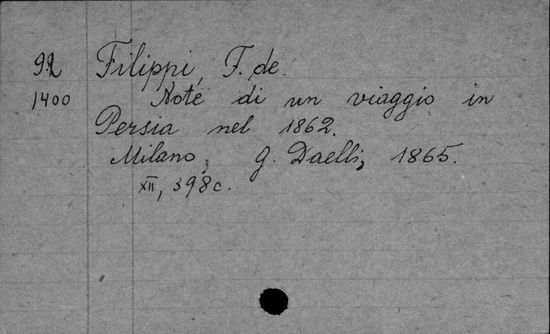 92 Filippi, F. de.
1400 Note di un viaggio in
Persia nel 1862.
Milano, G. Daelli, 1865.
XII, 398c.